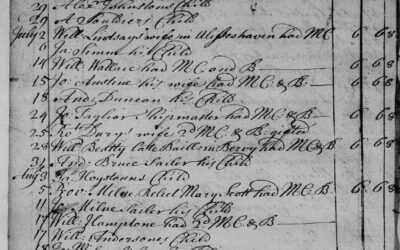 29 Alexr Johnstons Child
29 A Souldiers Child
July 2 Will: Lindsays wife in Ulysseshaven had MC 6 6 8
Ja: Simm his Child
14 Will: Wallace had MC and B 6 6 8
15 Jo: Austine his wife had M: C: & B 6 6 8
18 And: Duncan his Child
24 Jo: Taylior Shipmaster had M: C & B 6 6 8
25 Ro: Durys wife 2d M C, & B: gifted
29 Will: Beatty late Baillie in Bervy had M C & B 6 6 8
31 And: Bruce Sailer his Child
Aug 3 Hogstouns Child
5 Rov: Milne Relict Mary Scott had M C: B 6 6 8
11 Jo: Milne Sailer his Child
17 Will: Hamptone had 2d M: C & B
17 Will: Andersones Child